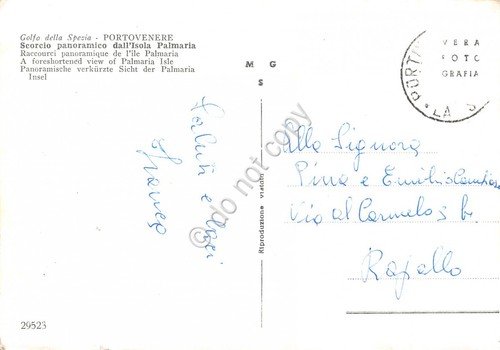 Golfo della Spezia - PORTOVENERE
Scorcio panoramico dall'Isola Palmaria
Raccourci panoramique de l'île Palmaria
A foreshortened view of Palmaria Isle
Panoramische verkürzte Sicht der Palmaria
Insel
M G
S
VERA
FOTO
GRAFIA
PORTO
LA S
Saluti e baci
Franco
Riproduzione vietata
©do not copy
Alla Signora
Pina e Emilio
Via al Carmelo 3
Rapallo
29523